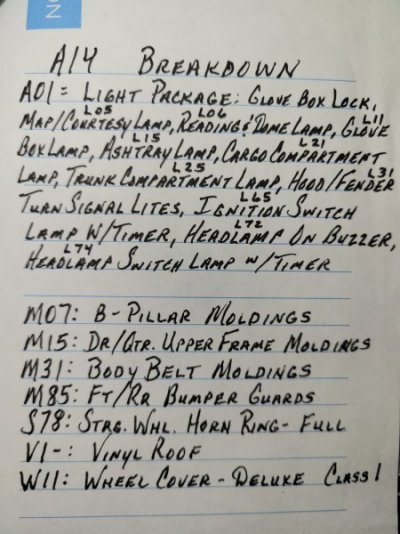 NO
A14 BREAKDOWN
A01 = LIGHT PACKAGE: GLOVE BOX LOCK,
L05 L06 L11
MAP/COURTESY LAMP, READING & DOME LAMP, GLOVE
L15 L21
BOX LAMP, ASHTRAY LAMP, CARGO COMPARTMENT
L25 L31
LAMP, TRUNK COMPARTMENT LAMP, HOOD/FENDER
L65
TURN SIGNAL LITES, IGNITION SWITCH
L72
LAMP W/TIMER, HEADLAMP ON BUZZER,
L74
HEADLAMP SWITCH LAMP W/TIMER
M07: B-PILLAR MOLDINGS
M15: DR/QTR. UPPER FRAME MOLDINGS
M31: BODY BELT MOLDINGS
M85: FT/RR BUMPER GUARDS
S78: STRG. WHL. HORN RING- FULL
V1-: VINYL ROOF
W11: WHEEL COVER - DELUXE CLASS 1